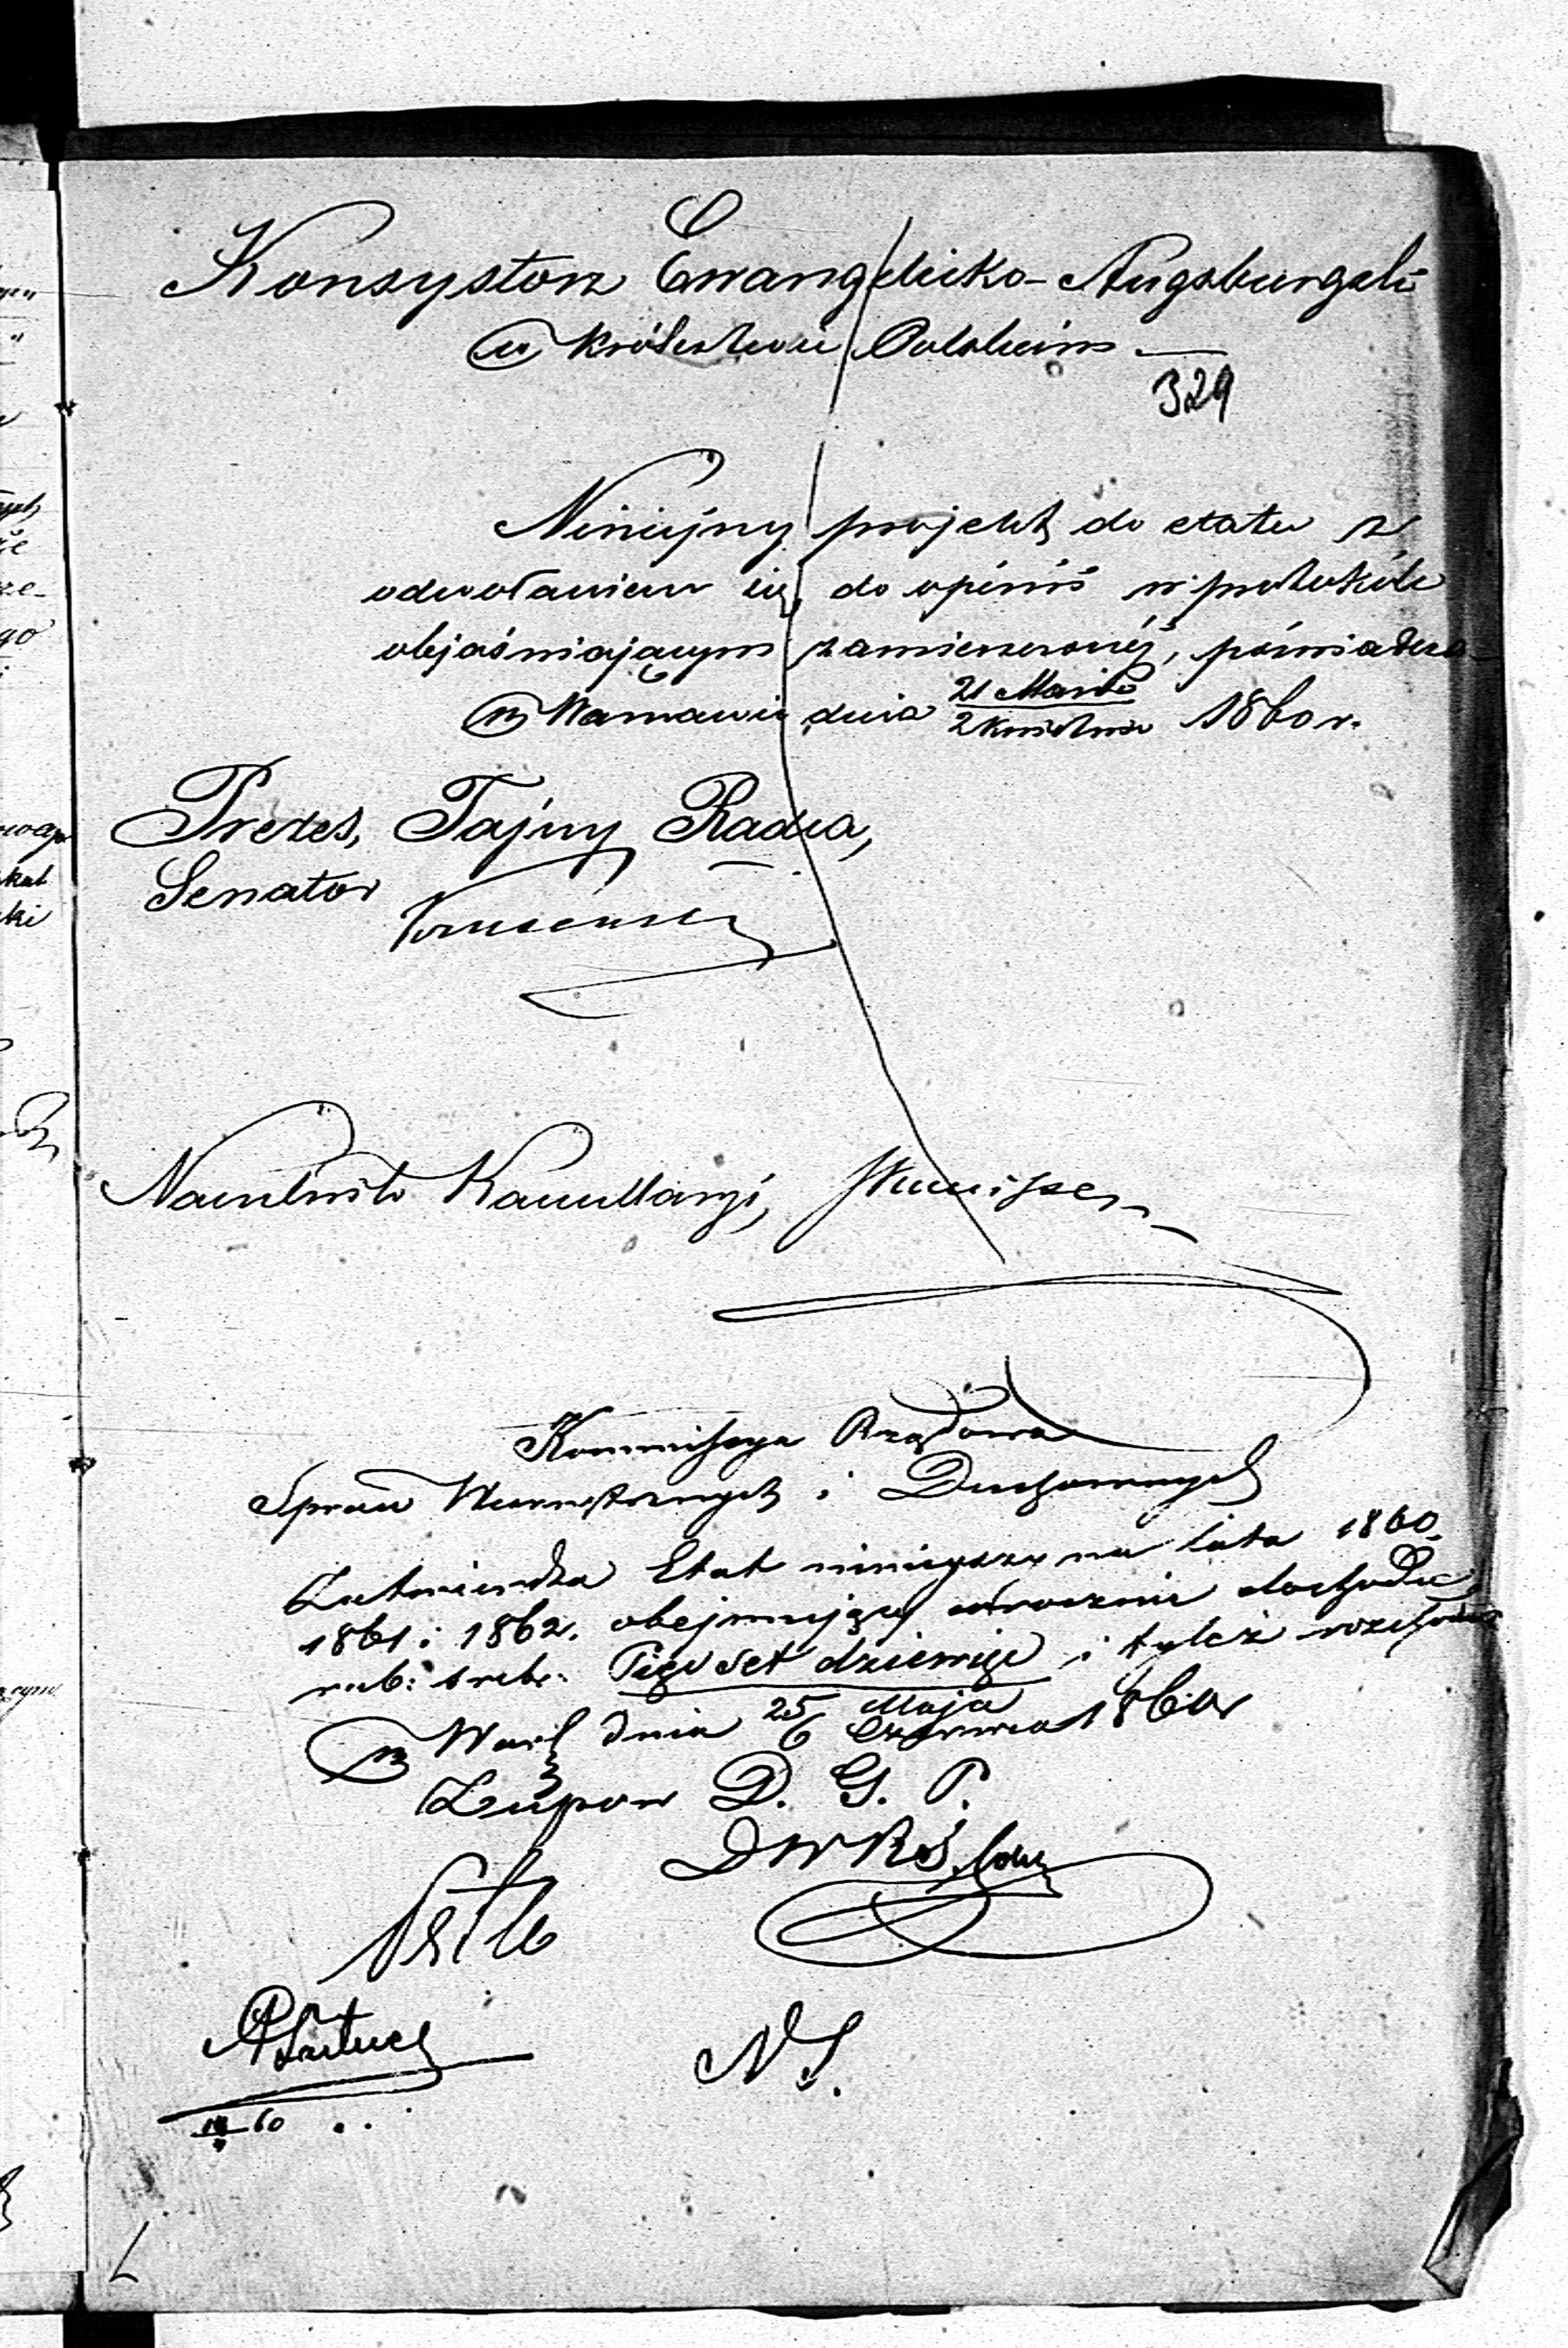 Konsystorz Ewangelicko-Augsburgski
w Królestwie Polskim
329
Niniejszy projekt do etatu z
odwołaniem się do opinii w protokóle
objaśniającym zamieszczonéj, poświadcza
w Warszawie dnia 21 Marca / 2 Kwietnia 1860 r.
Prezes, Tajny Radca,
Senator
Naczelnik Kancellaryi,
Kommissya Rządowa
Spraw Wewnętrznych i Duchownych
Zatwierdza Etat niniejszy na lata 1860.
1861 i 1862. obejmujący rocznie dochodu
rub: srebr: Pięćset dziewięć i tyleż rozchodu
w Warsz dnia 25 Maja / 6 Czerwca 1860 r
D. G. P.